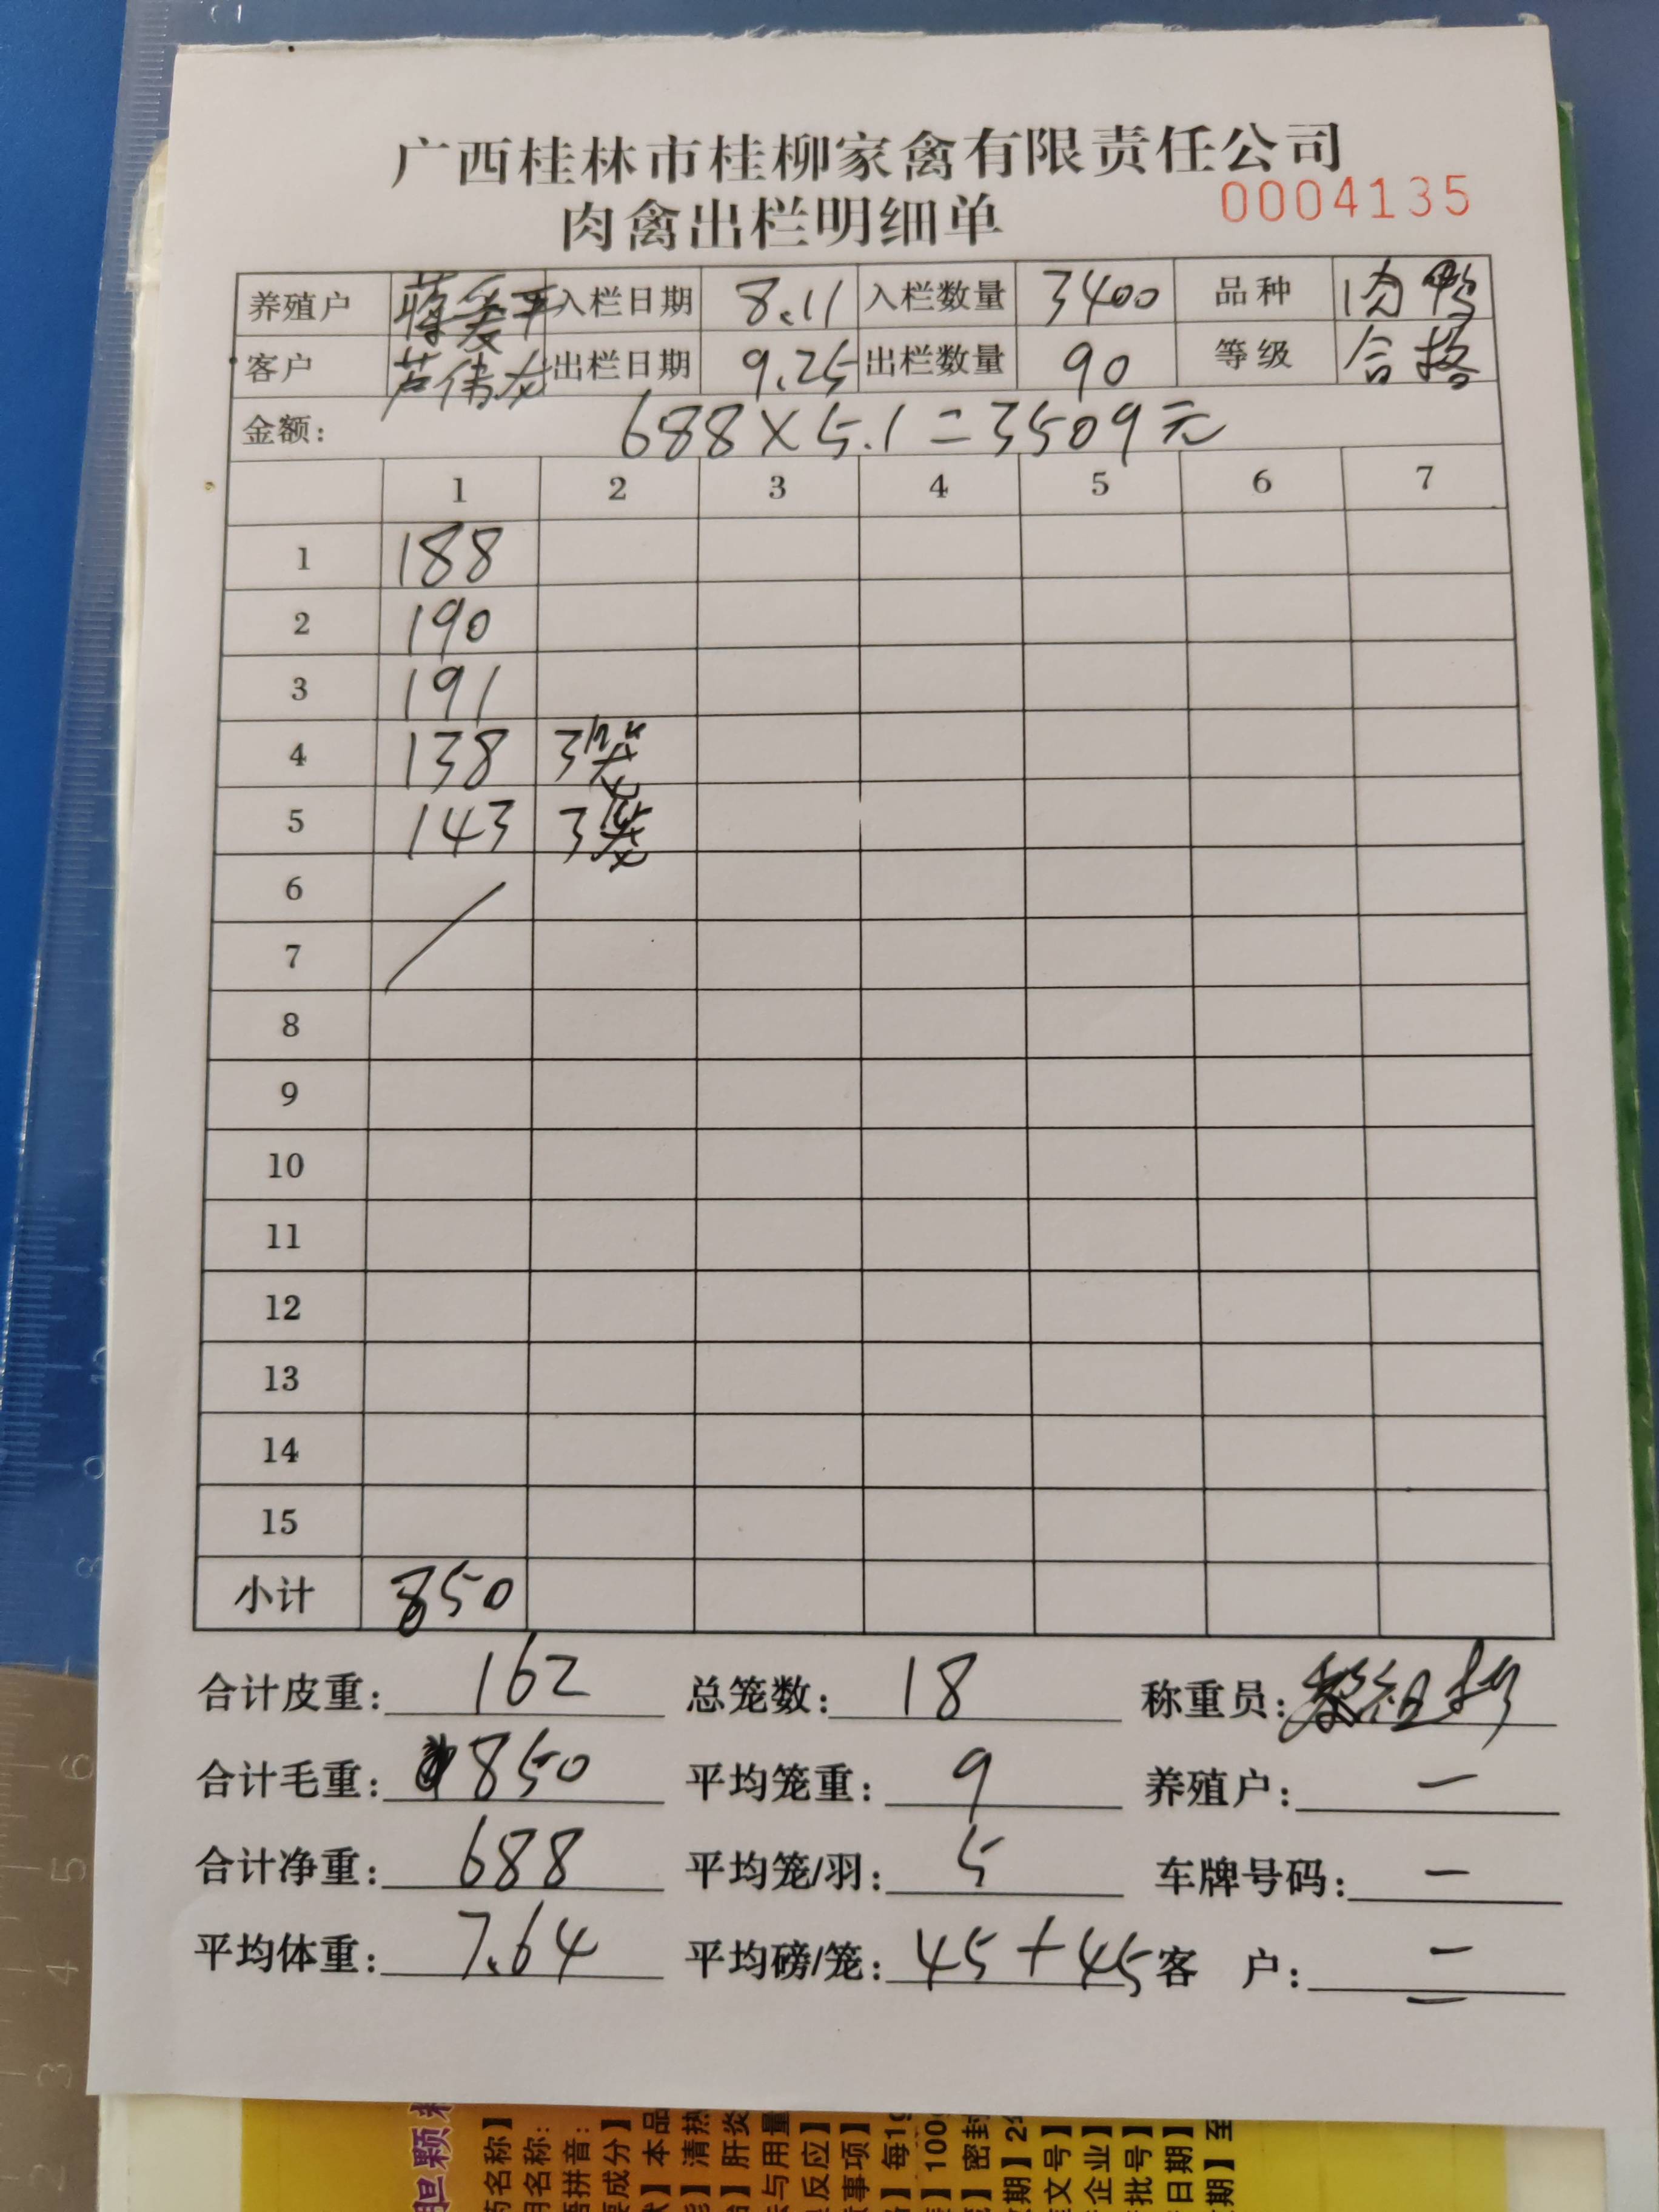 广西桂林市桂柳家禽有限责任公司
肉禽出栏明细单 0004135
养殖户 蒋爱平 入栏日期 8.11 入栏数量 3400 品种 肉鸭
客户 芦伟龙 出栏日期 9.25 出栏数量 90 等级 合格
金额: 688×5.1=3509元
1 2 3 4 5 6 7
1 188
2 190
3 191
4 138 3笼
5 143 3笼
6
7
8
9
10
11
12
13
14
15
小计 850
合计皮重: 162 总笼数: 18 称重员:
合计毛重: 850 平均笼重: 9 养殖户: 一
合计净重: 688 平均笼/羽: 5 车牌号码: 一
平均体重: 7.64 平均磅/笼: 45+45 客 户: 二
胆颗
药名称】
用名称:
语拼音:
要成分】
】本品
】清热
】肝炎
与用量
反应】
事项】
】每1
】100
】密封
期】2
文号】
企业】
批号】
日期】
期】至